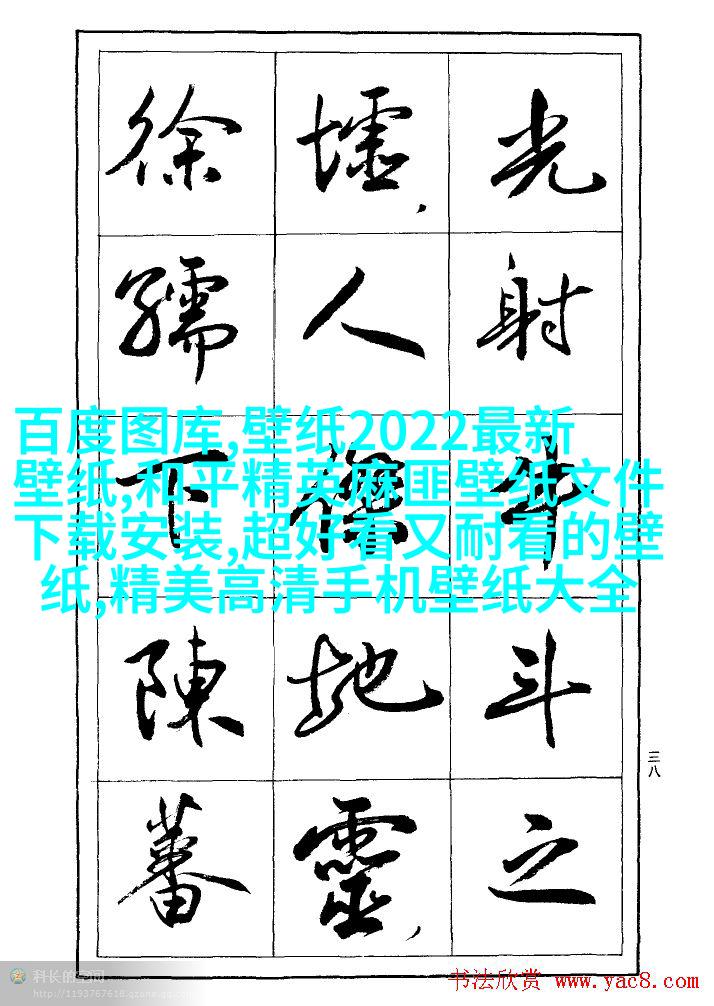 光射牛斗之
墟,人傑地靈,
徐孺下陳蕃
百度图库,壁纸2022最新
壁纸,和平精英麻匪壁纸文件
下载安装,超好看又耐看的壁
纸,精美高清手机壁纸大全
三八
科长的空间
http://1193767618.qzone.qq.com
书法欣赏 www.yac8.com